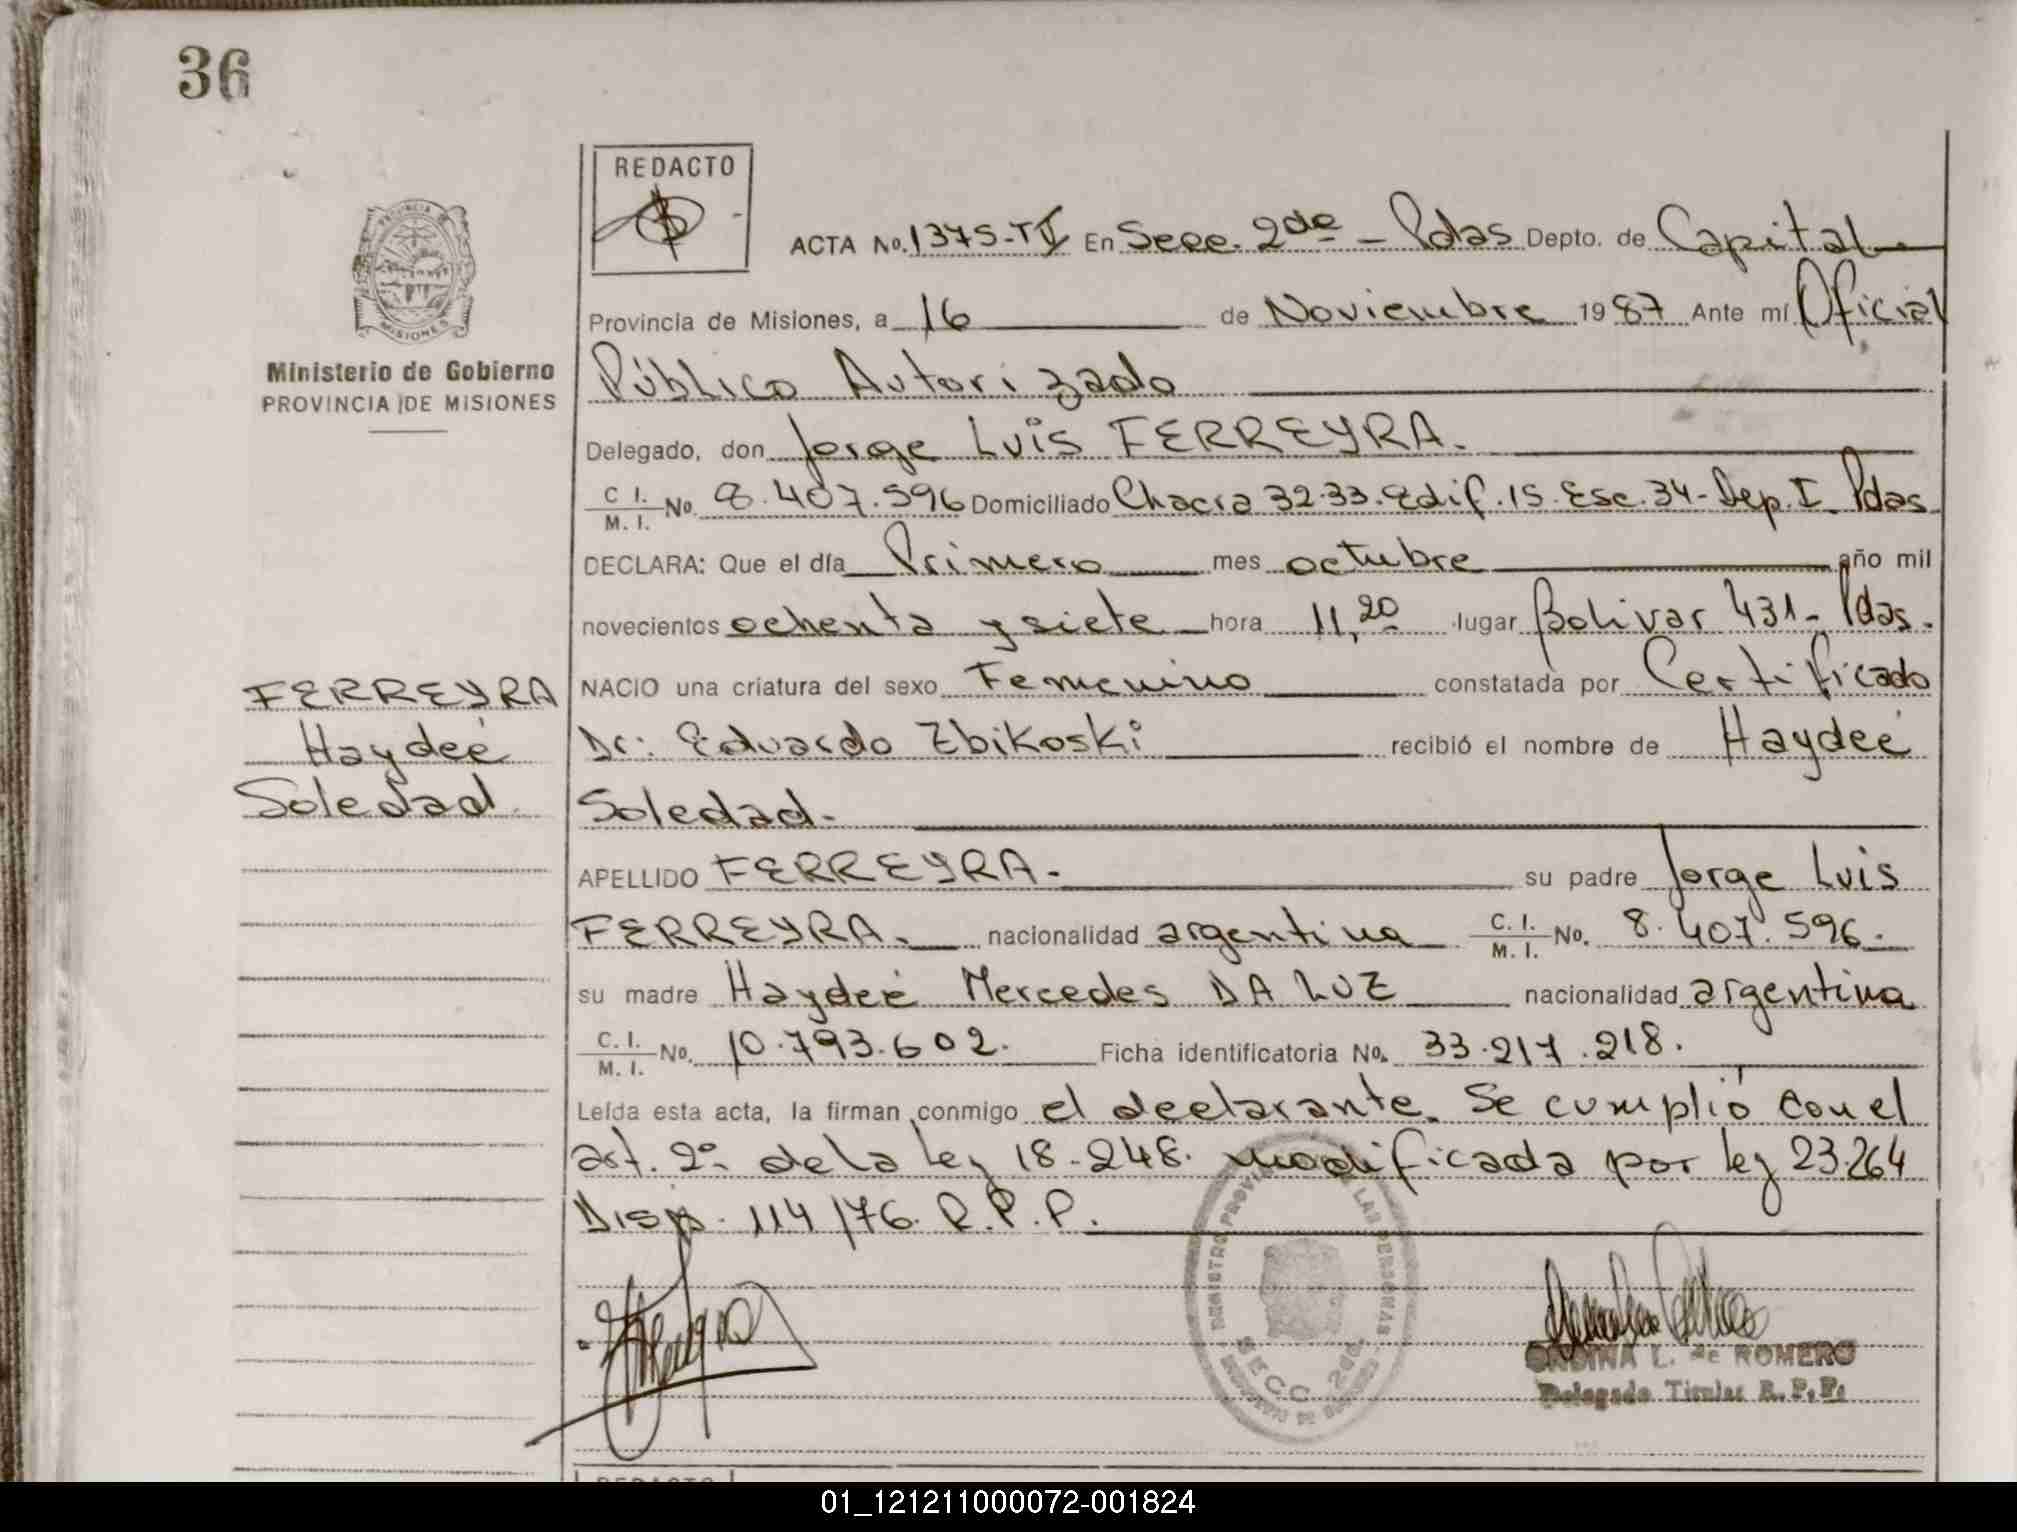 36
REDACTO
ACTA No. 1375-TV En Secc. 2da - Pdas Depto. de Capital
Provincia de Misiones, a 16 de Noviembre 1987 Ante mí Oficial
Público Autorizado
Delegado, don Jorge Luis FERREYRA.
C I. / M. I. No. 8.407.596 Domiciliado Chacra 32-33. Edif. 15. Esc. 34- Dep. I. Pdas
DECLARA: Que el día Primero mes octubre año mil
novecientos ochenta y siete hora 11,20 lugar Bolivar 431- Pdas.
NACIO una criatura del sexo Femenino constatada por Certificado
Dr: Eduardo Zbikoski recibió el nombre de Haydeé
Soledad.
APELLIDO FERREYRA. su padre Jorge Luis
FERREYRA. nacionalidad argentina C. I. / M. I. No. 8.407.596.
su madre Haydeé Mercedes DA LUZ nacionalidad argentina
C. I. / M. I. No. 10.793.602. Ficha identificatoria No. 33.217.218.
Leída esta acta, la firman conmigo el declarante. Se cumplió con el
art. 2º de la Ley 18.248. modificada por ley 23.264
Disp. 114/76. R.P.P.
PROVINCIA DE
MISIONES
Ministerio de Gobierno
PROVINCIA DE MISIONES
FERREYRA
Haydeé
Soledad
REGISTRO PROV LAS PERSONAS
SECC. 2da.
L. de ROMERO
Delegado Titular R. P. P.
REDACTO
01_121211000072-001824